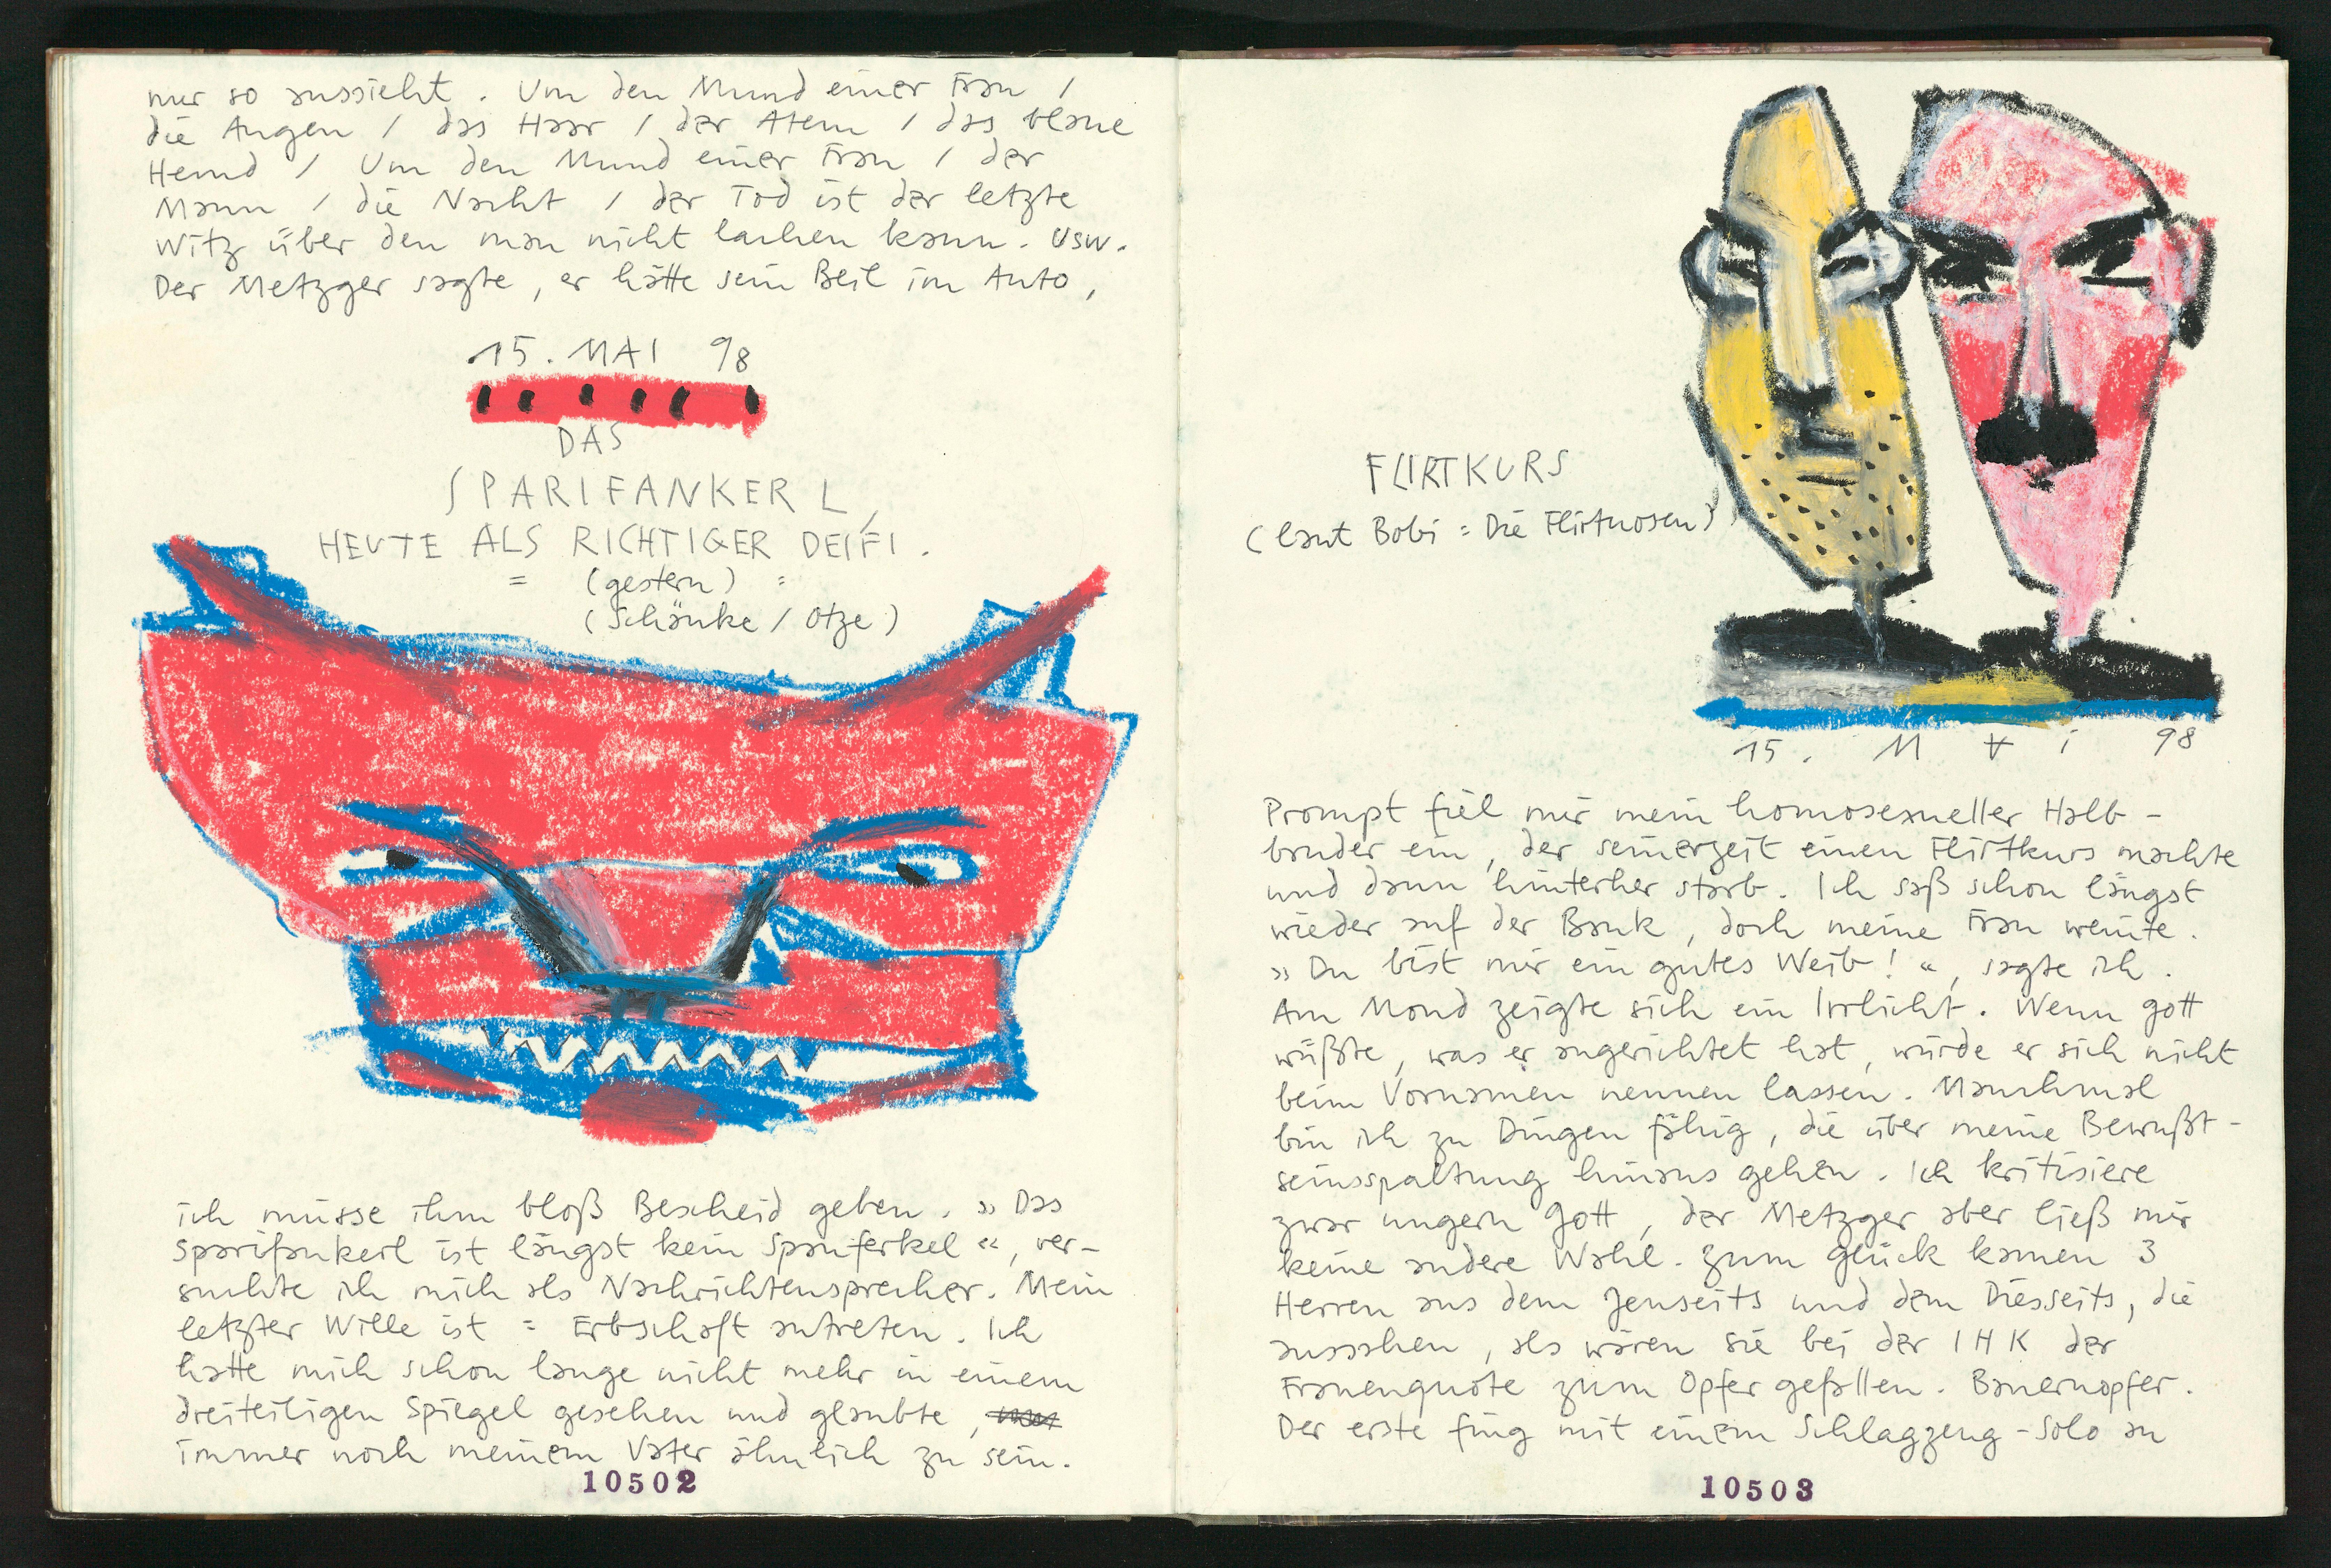 nur so aussieht. Um den Mund einer Frau /
die Augen / das Haar / der Atem / das blaue
Hemd / Um den Mund einer Frau / der
Mann / die Nacht / der Tod ist der letzte
Witz über den man nicht lachen kann. usw.
Der Metzger sagte, er hätte sein Beil im Auto,
15. MAI 98
DAS
SPARIFANKERL,
HEUTE ALS RICHTIGER DEIFI.
= (gestern) =
(Schänke / Otze)
ich müsse ihm bloß Bescheid geben. »Das
Sparifankerl ist längst kein Spanferkel«, ver-
suchte ich mich als Nachrichtensprecher. Mein
letzter Wille ist = Erbschaft antreten. Ich
hatte mich schon lange nicht mehr in einem
dreiteiligen Spiegel gesehen und glaubte,
immer noch meinem Vater ähnlich zu sein.
10502
FLIRTKURS
(laut Bobi = Die Flirtuosen)
15. M A i 98
Prompt fiel mir mein homosexueller Halb-
bruder ein, der seinerzeit einen Flirtkurs machte
und dann hinterher starb. Ich saß schon längst
wieder auf der Bank, doch meine Frau weinte.
»Du bist mir ein gutes Weib!«, sagte ich.
Am Mond zeigte sich ein Irrlicht. Wenn Gott
wüßte, was er angerichtet hat, würde er sich nicht
beim Vornamen nennen lassen. Manchmal
bin ich zu Dingen fähig, die über meine Bewußt-
seinsspaltung hinaus gehen. Ich kritisiere
zwar ungern Gott, der Metzger aber ließ mir
keine andere Wahl. Zum Glück kamen 3
Herren aus dem Jenseits und dem Diesseits, die
aussahen, als wären sie bei der IHK der
Frauenquote zum Opfer gefallen. Bauernopfer.
Der erste fing mit einem Schlagzeug-Solo an
10503